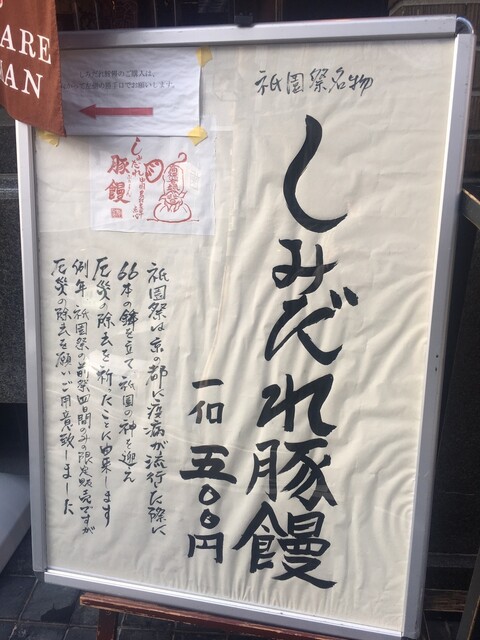 祇園祭名物
しみだれ豚饅
一個 五〇〇円
祇園祭は京の都に疫病が流行した際に
66本の鉾を立て祇園の神を迎え
厄災の除去を祈ったことに由来します
例年、祇園祭の前祭四日間のみの限定販売ですが
厄災の除去を願いご用意致しました
しみだれ豚饅のご購入は、
でお願いします。
しみだれ
豚饅
ARE
MAN